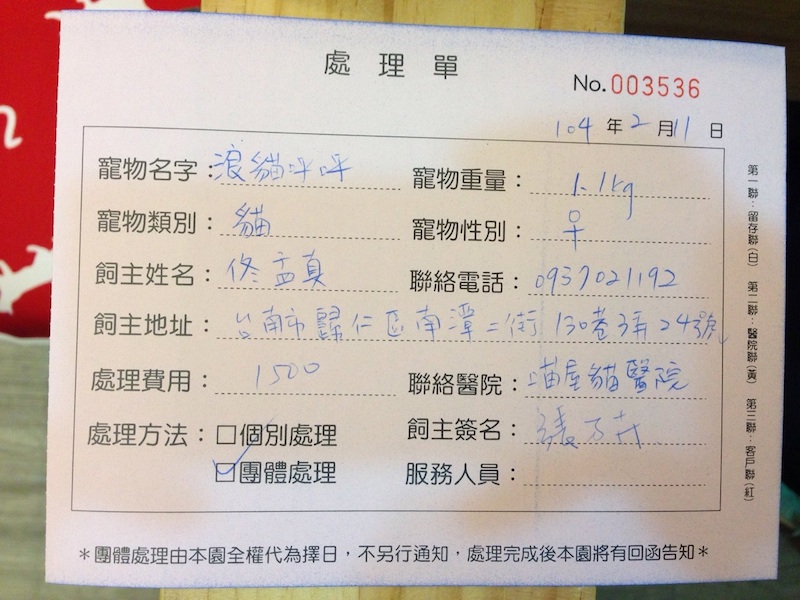 處理單
No. 003536
104年2月11日
寵物名字：浪貓呼呼 寵物重量：1.1kg
寵物類別：貓 寵物性別：♀
飼主姓名：佟孟真 聯絡電話：0937021192
飼主地址：台南市歸仁區南潭二街130巷3弄24號
處理費用：1500 聯絡醫院：喵屋貓醫院
處理方法：□個別處理 飼主簽名：
☑團體處理 服務人員：
＊團體處理由本園全權代為擇日，不另行通知，處理完成後本園將有回函告知＊
第一聯：留存聯(白) 第二聯：醫院聯(黃) 第三聯：客戶聯(紅)